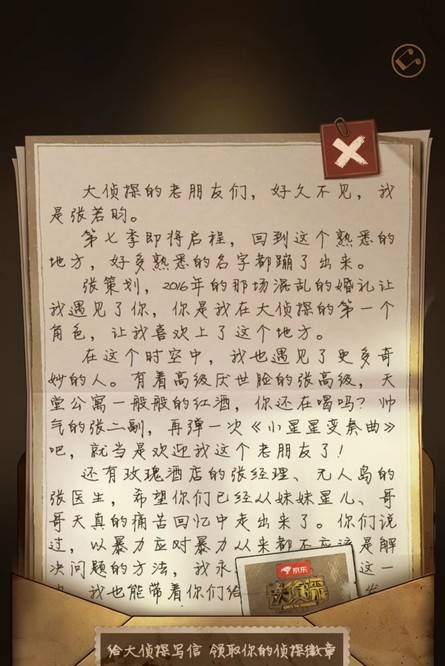 大侦探的老朋友们，好久不见，我
是张若昀。
第七季即将启程，回到这个熟悉的
地方，好多熟悉的名字都蹦了出来。
张策划，2016年的那场混乱的婚礼让
我遇见了你，你是我在大侦探的第一个
角色，让我喜欢上了这个地方。
在这个时空中，我也遇见了更多奇
妙的人。有着高级厌世脸的张高级，天
堂公寓一般般的红酒，你还在喝吗？帅
气的张二副，再弹一次《小星星变奏曲》
吧，就当是欢迎我这个老朋友了！
还有玫瑰酒店的张经理、无人岛的
张医生，希望你们已经从妹妹星儿、哥
哥天真的痛苦回忆中走出来了。你们说
过，以暴力应对暴力从来都不应该是解
决问题的方法，我永 这一
我也能带着你们给
京东
大侦探
给大侦探写信 领取你的侦探徽章